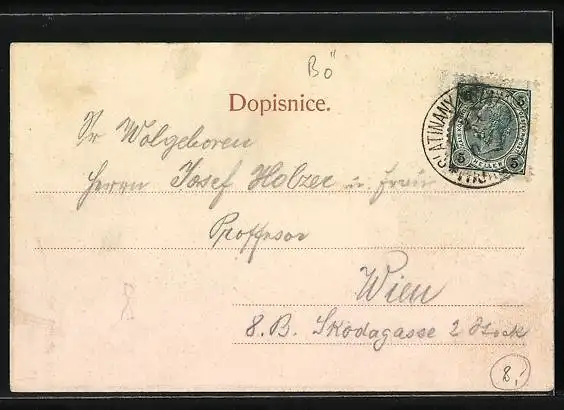 Bö
Dopisnice.
SLATIŇANY
5 5
HELLER
Sr Wolgeboren
Herrn Josef Holzer u. Frau
Proffesor
Wien
8. B. Skodagasse 2 Stock
8,-